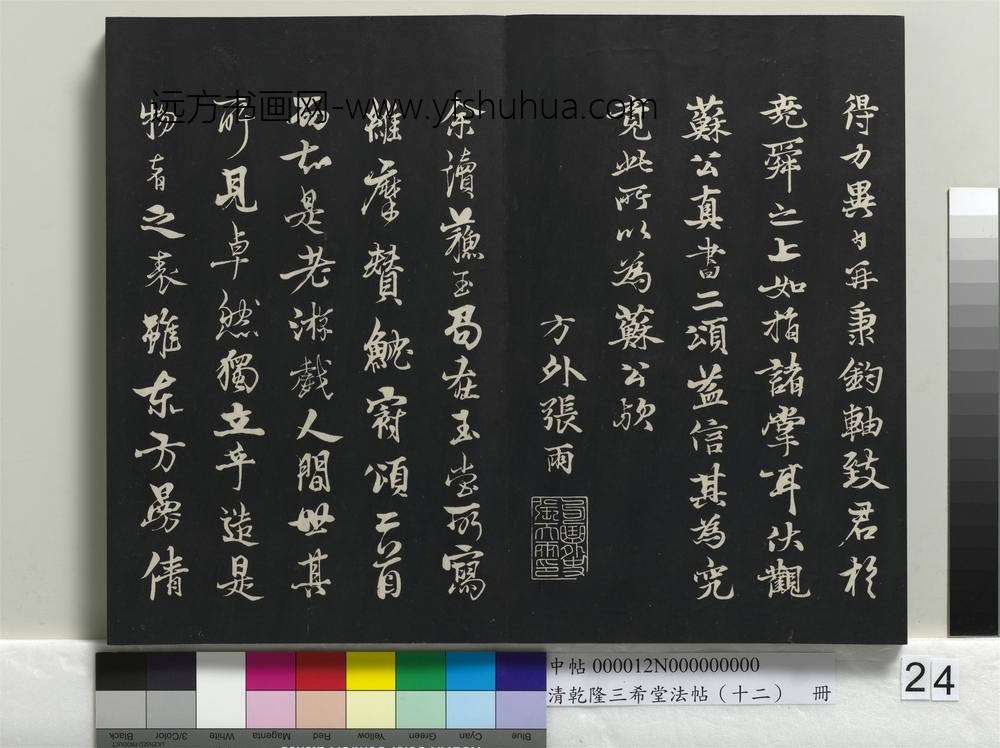 得力異日再秉鈞軸致君於
堯舜之上如指諸掌耳伏觀
蘇公真書二頌益信其為究
竟此所以為蘇公歟
方外張雨
余讀蘇玉局在玉堂所寫
維摩贊魷冠頌二首
乃知是老游戲人間世其
所見卓然獨立乎造是
物者之表雖東方曼倩
远方书画网-www.yfshuhua.com
中帖 000012N000000000
清乾隆三希堂法帖（十二） 冊
24
Blue
Cyan
Green
Yellow
Magenta
Red
White
3/Color
Black